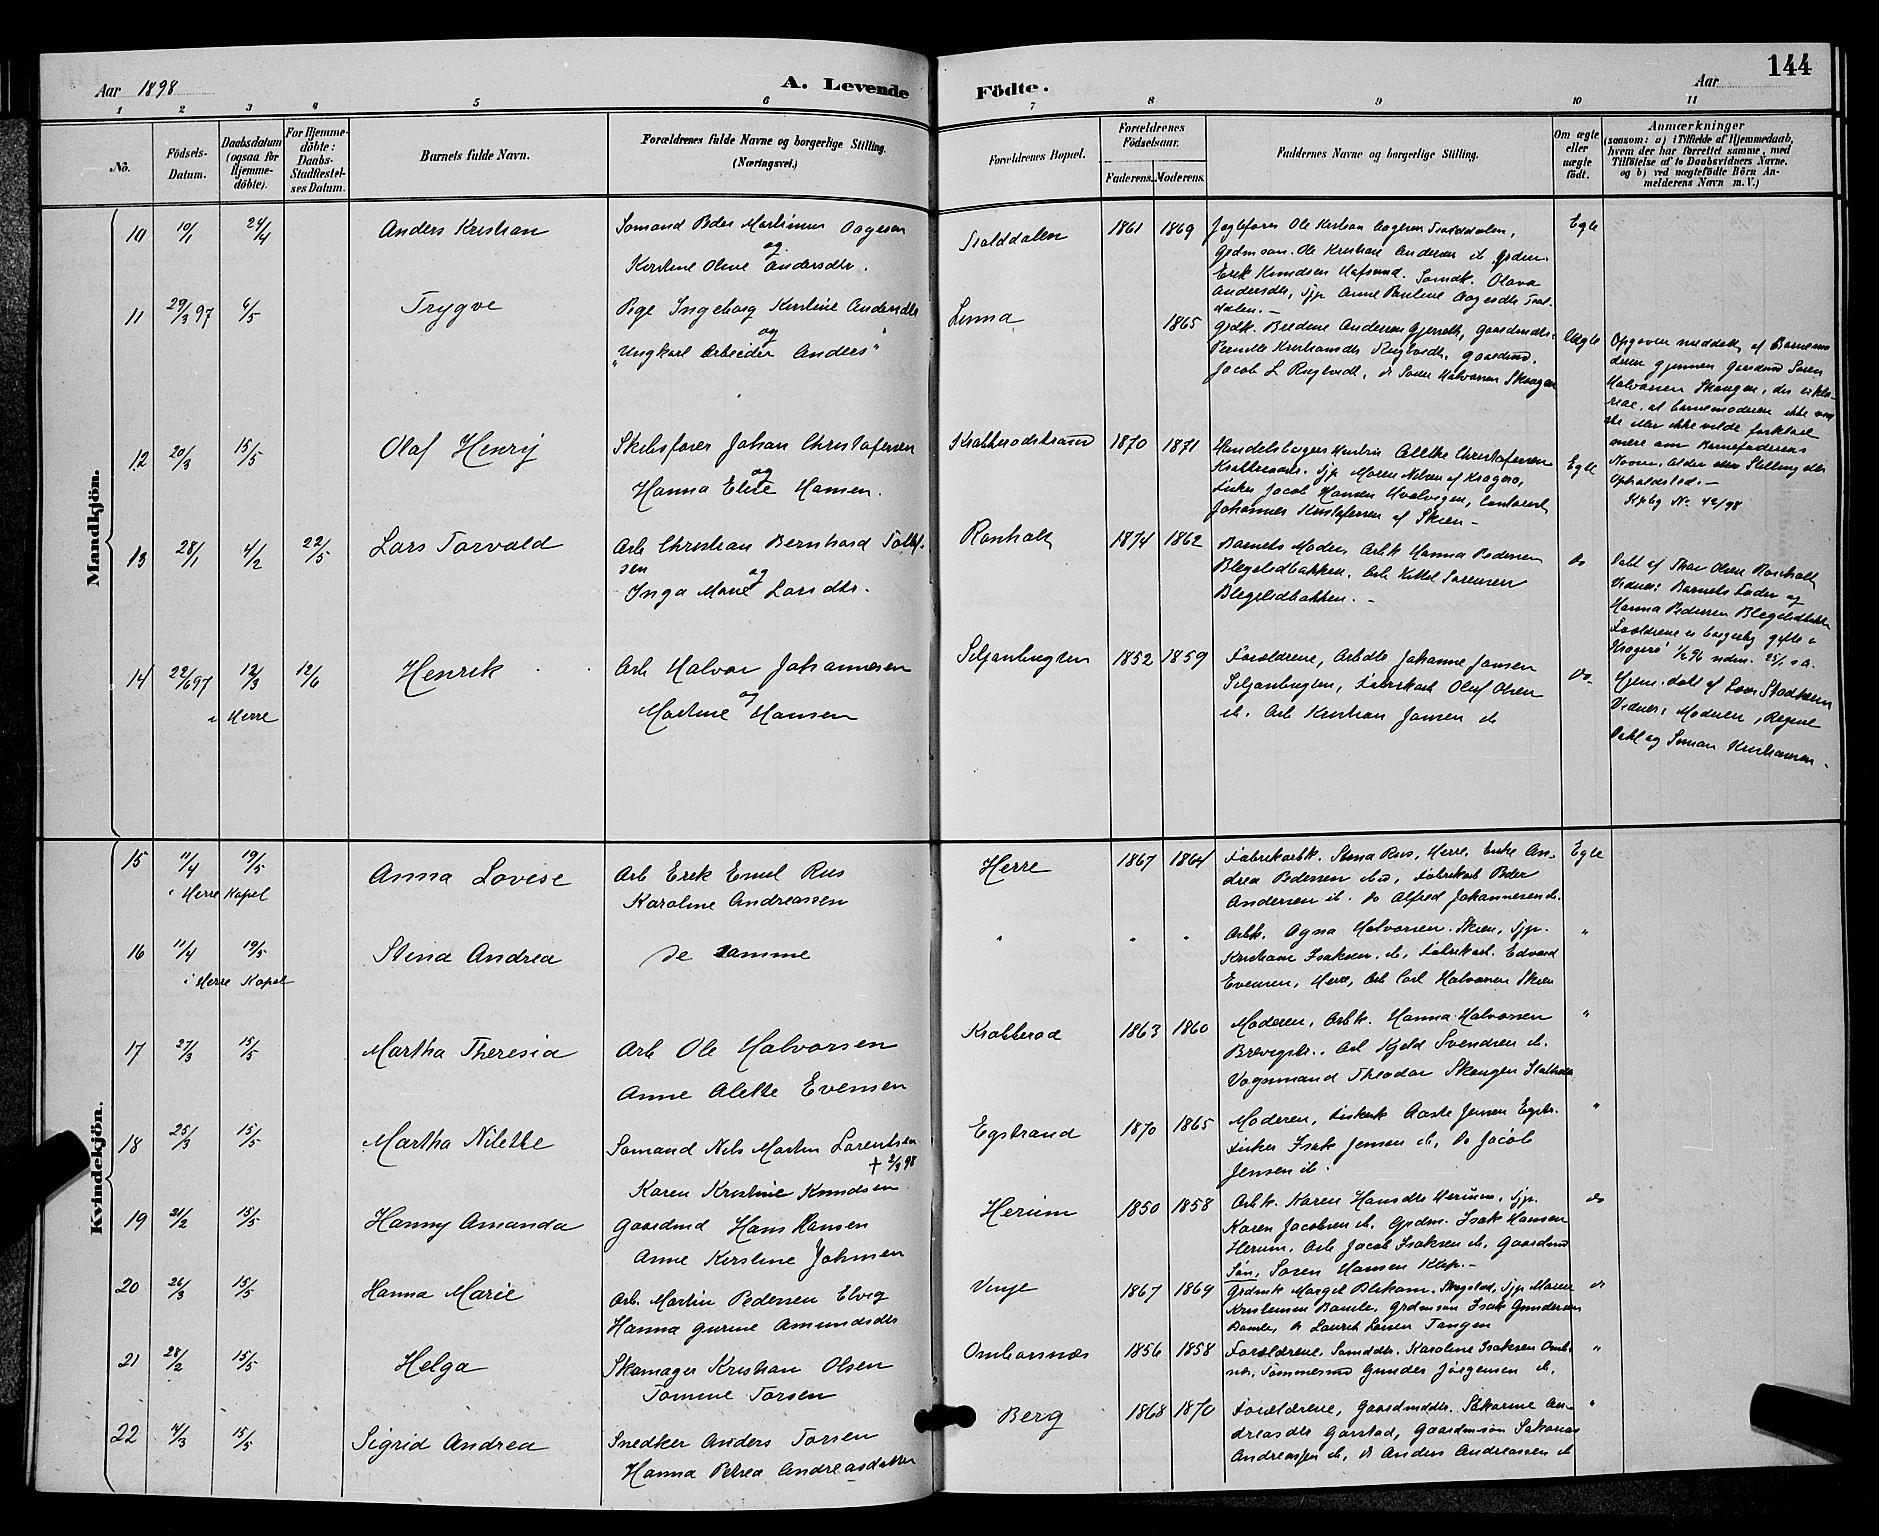 144
Aar 1898
A. Levende Födte.
Aar
1 2 3 4 5 6 7 8 9 10 11
No.
Födsels-
Datum.
Daabsdatum
(ogsaa for
Hjemme-
döbte).
For Hjemme-
döbte:
Daabs-
Stadfæstel-
ses Datum.
Barnets fulde Navn.
Forældrenes fulde Navne og borgerlige Stilling.
(Næringsvei.)
Forældrenes Bopæl.
Forældrenes
Födselsaar.
Faderens. Moderens.
Faddernes Navne og borgerlige Stilling.
Om ægte
eller
uægte
født.
Anmærkninger
(saasom: a) i Tilfælde af Hjemmedaab,
hvem der har forrettet samme, med
Tilföielse af to Daabsvidners Navne.
og b) ved uægtefödte Börn An-
melderens Navn m. V.)
Mandkjön.
10 10/1 24/4 Anders Kristian
Sømand Peder Martinus Aagesen
og
Kirstine Oline Andersdtr.
Traaddalen 1861 1869
Ole Kristian Aagesen Traaddalen,
Grdmson. Ole Kristian Andersen ib.
Erik Knudsen Olava
Andersdtr, Tjp Anne Pauline Aagesdtr
dalen.-
Egte
11 29/3 97 6/5 Trygve
Pige Ingeborg Kirstine Andersdtr
og
"Ungkarl Arbeider Anders"
Linna 1865
Bredine Andersen Gjerreth,
Pernille Kristiansdtr Rugtvedt,
Jacob L Rugtvedt, Søren Halvorsen Skougen
Uegte
Opgaven meddelt af Barnemo
deren gjennem Gaardmd Søren
Halvorsen Skougen, der erklæ-
rede, at barnemoderen ikke vid
ste eller ikke vilde forklare
mere om Barnefaderens
Navn, Alder eller Stilling eller
Opholdssted.-
No 42/98
12 20/3 15/5 Olaf Henry
Skibsfører Johan Christofersen
og
Hanna Elise Hansen.
Krabberødstrand 1870 1871
Christofersen
Krabberød. Tjp Maren Nilsen af Kragerø,
Fisker Jacob Hansen
Johannes Kristofersen af Skien-
Egte
13 28/1 4/2 22/5 Lars Torvald
Arb Christian Bernhard Tollef-
sen
og
Inga Marie Larsdtr.
Rønholt 1874 1862
Barnets Moder, Arbk Hanna Pedersen
Blegeledbakken. Arb Kittel Sørensen
Blegeledbakken.-
do
Døbt af Thor Olsen Rønholt
Vidner: Barnets Fader og
Hanna Pedersen Blegeledbakken
Forældrene er borgerlig gifte i
Kragerø
14 22/6 97 12/3 12/6 Henrik
i Herre
Arb Halvor Johannesen
og
Martine Hansen
Siljanbugten 1852 1859
Forældrene, Arbdtr Johanne Jansen
Siljanbugten, Fabrikarb Oluf Olsen
ib. Arb Kristian Jansen ib
do-
Hjem.døbt af
Vidner: Moderen, Regine
Dahl og Simon Kristiansen-
Kvindekjön.
15 11/4 19/5 Anna Lovise
i Herre Kapel
Arb Erik Emil Rus
Karoline Andreassen
Herre 1867 1864
Fabrikarbk. Stina Rus, Herre. Enke An-
drea Pedersen ib, Fabrikarb Peder
Andersen ib. do Alfred Johannesen ib.
Egte
16 11/4 19/5 Stina Andrea
i Herre Kapel
De samme
" " "
Arbk. Agna Halvorsen. Skien, Tjp.
Kristiane Isaksen. ib, Fabrikarb. Edvard
Evensen, Herre, Arb Carl Halvorsen Skien
"
17 27/3 15/5 Martha Theresia
Arb Ole Halvorsen
Anne Alette Evensen
Krabberød 1863 1860
Moderen, Arbk. Hanna Halvorsen
Brevigstr. Arb Kjeld Svendsen ib.
Vognmand Theodor Skougen Stathelle
"
18 25/3 15/5 Martha Nilette
Sømand Nils Martin Lorentsen
+ 2/3 98
Karen Kristine Knudsen
Egstrand 1870 1865
Moderen, Fiskerk Aaste Jensen Egstr.
Fisker Isak Jensen ib, do Jacob
Jensen ib.
"
19 21/2 15/5 Hanny Amanda
Gaardmd Hans Hansen
Anne Kirstine Johnsen
Herum 1850 1858
Arbk. Karen Hansdtr Herum, Tjp.
Karen Jacobsen ib. Grdm. Isak Hansen
Herum. Arb Jacob Isaksen ib, Gaardmd
Søn, Søren Hansen Klep.-
do
20 26/3 15/5 Hanna Marie
Arb. Martin Pedersen Elvig
Hanna Gurine Amundsdtr
Vinje 1867 1869
Grdmk Margit Skogstad, Tjp Maren
Kristensen Bamle, Grdmsøn Isak Gundersen
Bamle, do Laurits Larsen Tangen
do
21 28/2 15/5 Helga
Skomager Kristian Olsen
Tomine Torsen
Ombørsnæs 1856 1858
Forældrene, Sømddtr. Karoline Isaksen Omb.
næs, Tømmermd Gunder Jørgensen ib.
"
22 4/3 15/5 Sigrid Andrea
Snedker Anders Torsen
Hanna Petrea Andreasdatter
Berg 1868 1870
Forældrene, Gaardmddtr. Sakarine An-
dreasdtr Garstad, Gaardmsøn Sakarias
Andreassen ib, do Anders Andreassen ib
"